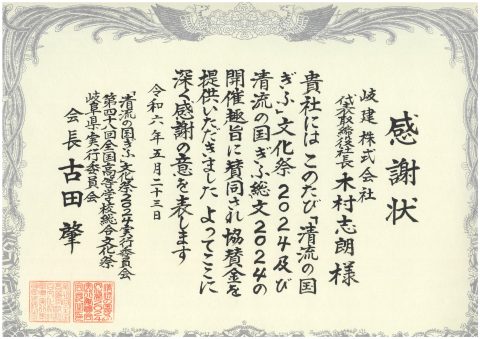 感謝状
岐建株式会社
代表取締役社長 木村志朗様
貴社にはこのたび「清流の国
ぎふ」文化祭2024及び
清流の国ぎふ総文2024の
開催趣旨に賛同され協賛金を
提供いただきました よってここに
深く感謝の意を表します
令和六年五月二十三日
「清流の国ぎふ」文化祭2024実行委員会
第四十八回全国高等学校総合文化祭
岐阜県実行委員会
会長 古田肇